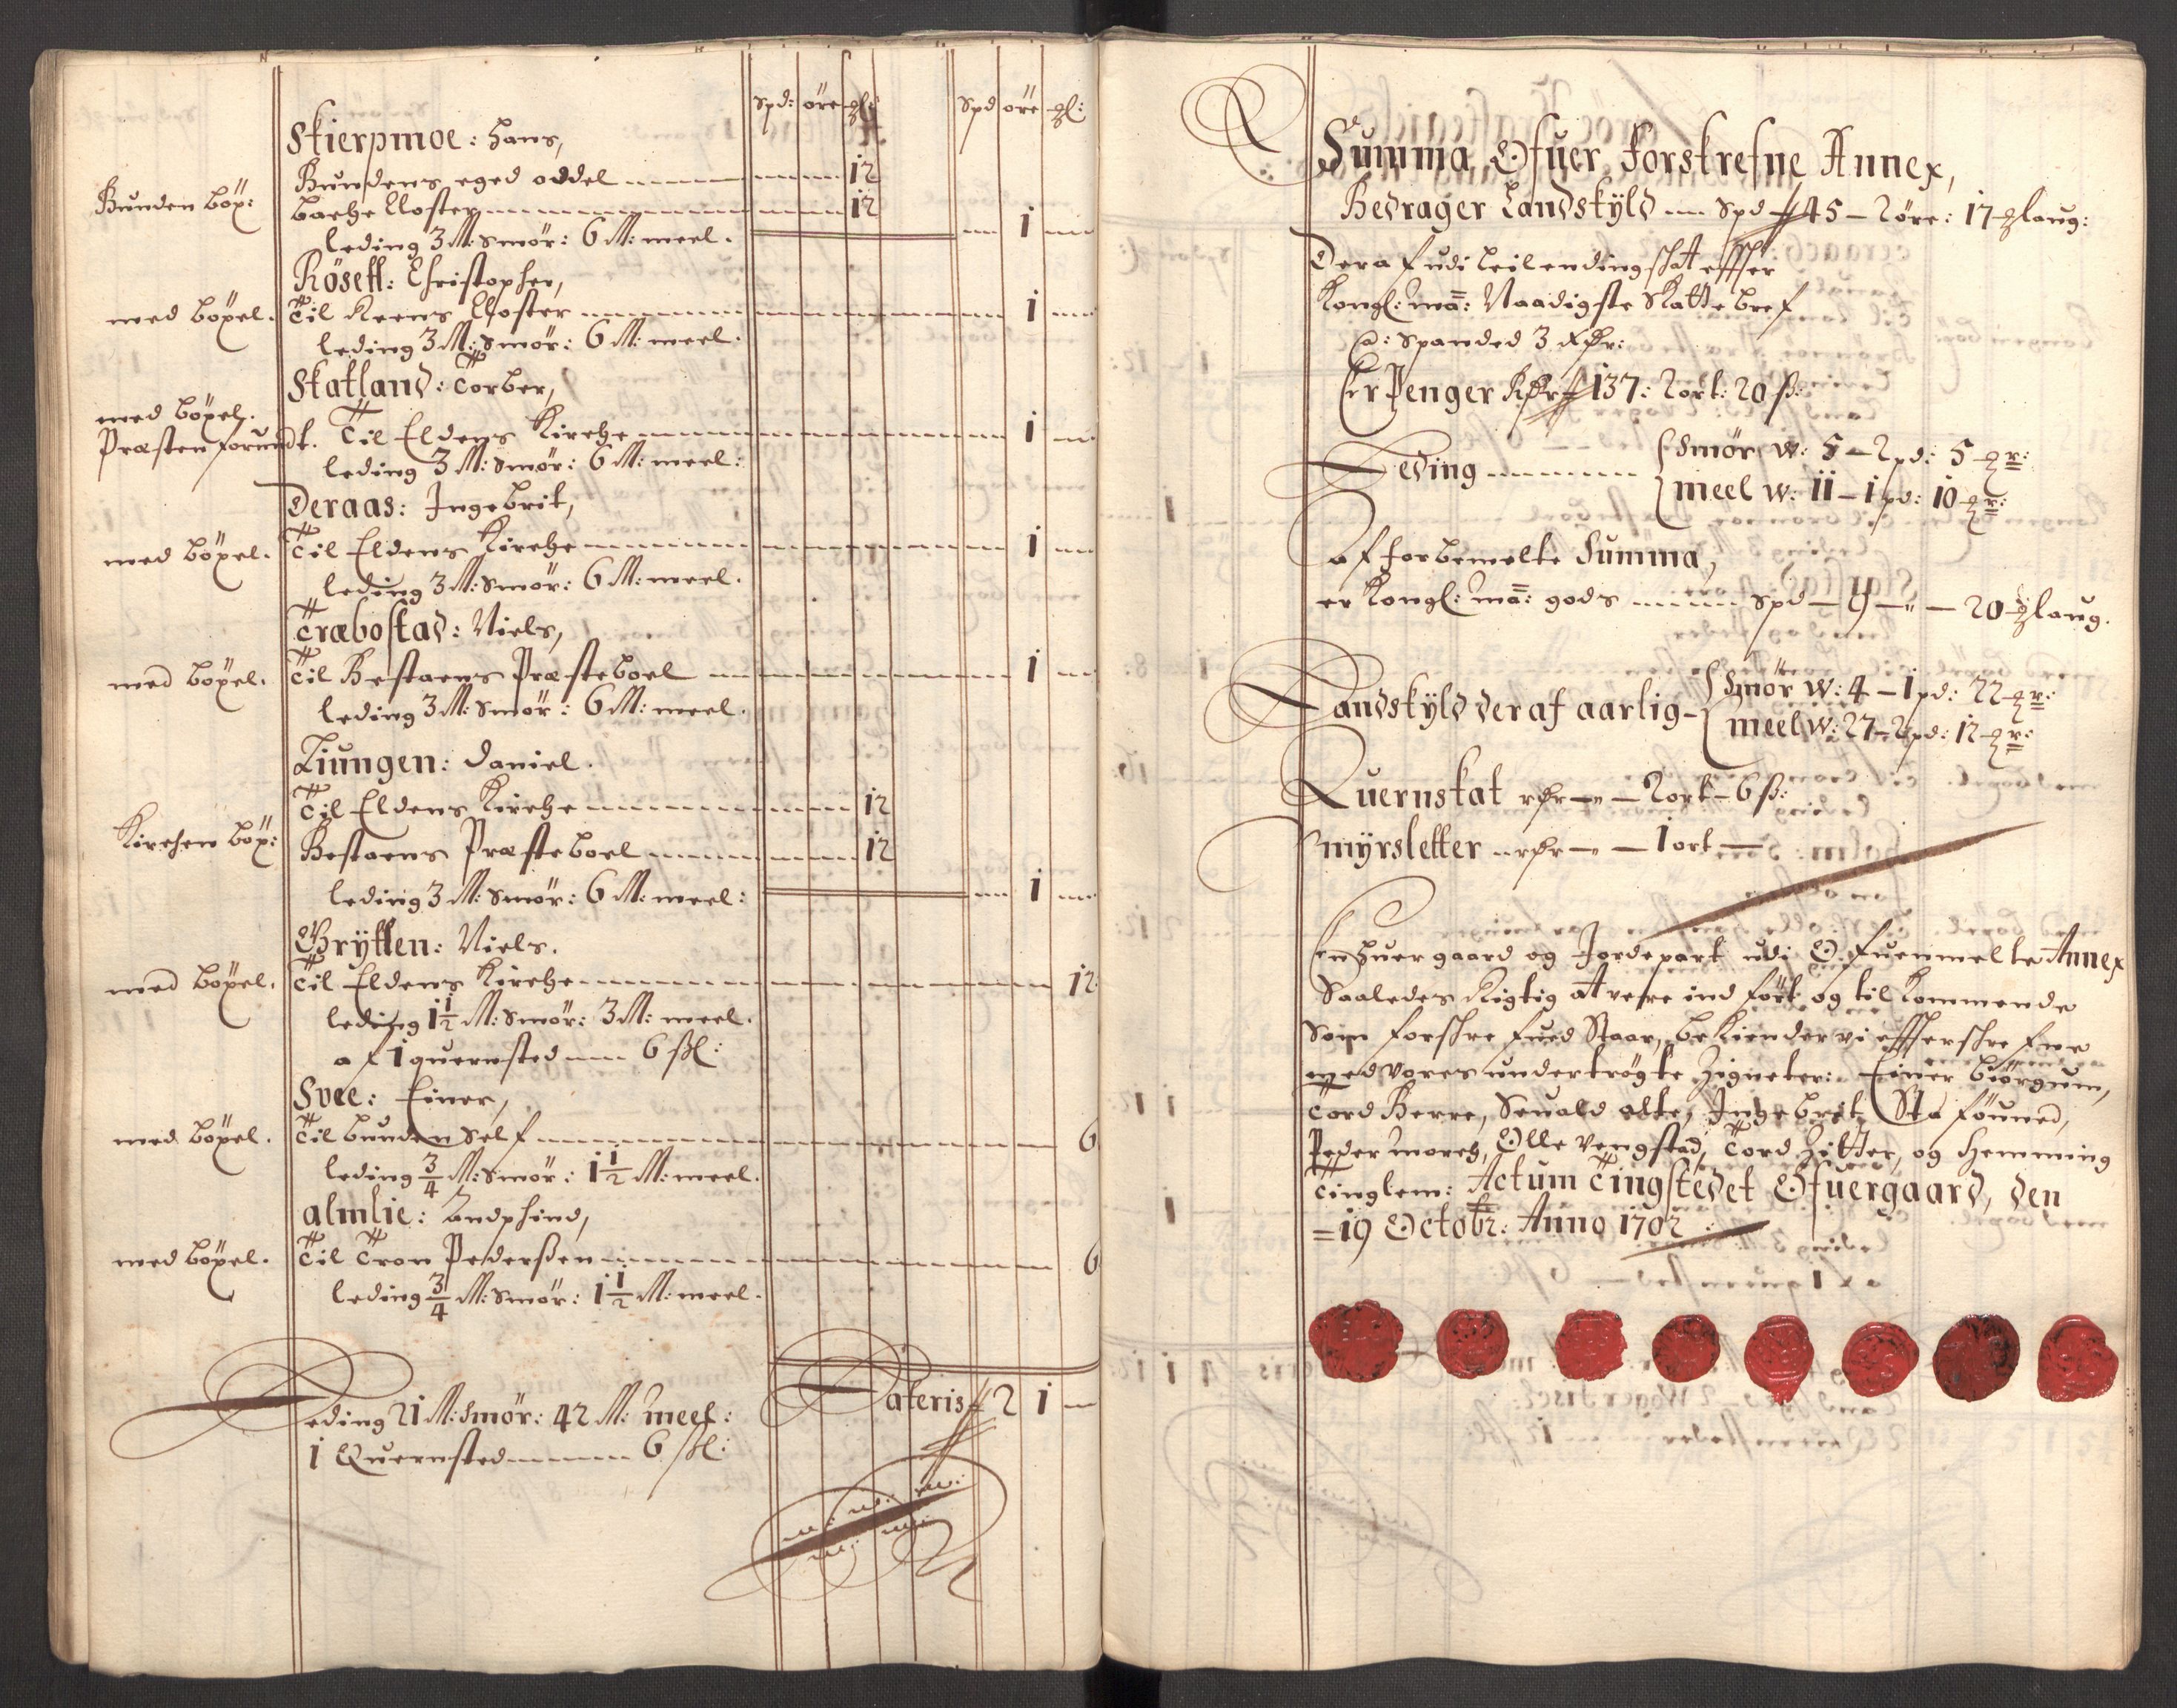 Spd: öre gl: Spd öre gl:
Skierpmoe: Hans,
Bunden böx: Bundens eged oddel 12
Bache Closter 12
leding 3 M: smör: 6 M: meel. 1
Rösett: Christopher,
med böxel. Til Reens Closter 1
leding 3 M: smör: 6 M: meel.
Skatland: Torber,
med böxel.
Præsten forundt. Til Eldens Kirche 1
leding 3 M: smör: 6 M: meel:
Deraas: Ingebrit,
med böxel. Til Eldens Kirche 1
leding 3 M: smör: 6 M: meel.
Træbostad: Niels,
med böxel. Til Bestaens Præsteboel 1
leding 3 M: smör: 6 M: meel.
Liungen: Daniel.
Til Eldens Kirche 12
Kirchen böx: Bestaens Præsteboel 12
leding 3 M: smör: 6 M: meel: 1
Grytten: Niels.
med böxel. Til Eldens Kirche 12
leding 1 1/2 M: smör: 3 M: meel.
af 1 quernsted 6 sk:
Svee: Einer,
med böxel. Til bunden Self 6
leding 3/4 M: smör: 1 1/2 M: meel.
almlie: Endphind,
med böxel. Til Tron Pederssen 6
leding 3/4 M: smör: 1 1/2 M: meel.
Lateris 2 1
Leding 21 M: smör: 42 M: meel:
1 Quernsted 6 sk:
Summa Ofuer Forskrefne Annex,
Bedrager Landskyld Spd 45 - 2 öre: 17 glaug:
Deraf udi leilending skat effter
Kongl: Ma: Naadigste Skatte bref
a: Spanded 3 rdr:
Er Penger Rdr 137: 2 ort: 20 s:
Leding Smör W: 5 - 2 pd: 5 mr:
meel W: 11 - 1 pd: 10 mr:
af forbemelte Summa,
er Kongl: Ma: gods Spd - 9 - " - 20 glaug.
Landskyld deraf aarlig - Smör W: 4 - 1 pd: 22 mr:
meel W: 27 - 2 pd: 12 mr:
Quernskat rdr - " - 2 ort - 6 s:
myrsletter rdr - " - 1 ort -
En huer gaard og Jordepart udi Ofuenmelte Annex
Saaledes Rigtig at vere ind fört og til kommende
Som forskrefued Staar, bekiender vi effterskrefne
med vores undertrögte Zigneter: Einer biörgum,
Tord Berre, Seuald alte, Ingebret Sta föuned,
Peder morch, Olle Vengstad, Tord Zitter, og Hemming
Tinglem: Actum Tingstedet Ofuergaard, den
= 19 Octobr: Anno 1702